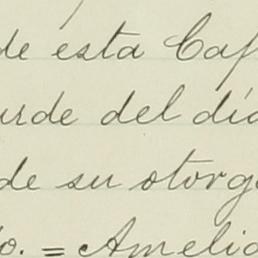 de esta Cap
arde del día
de su otorga
o. = Amelia